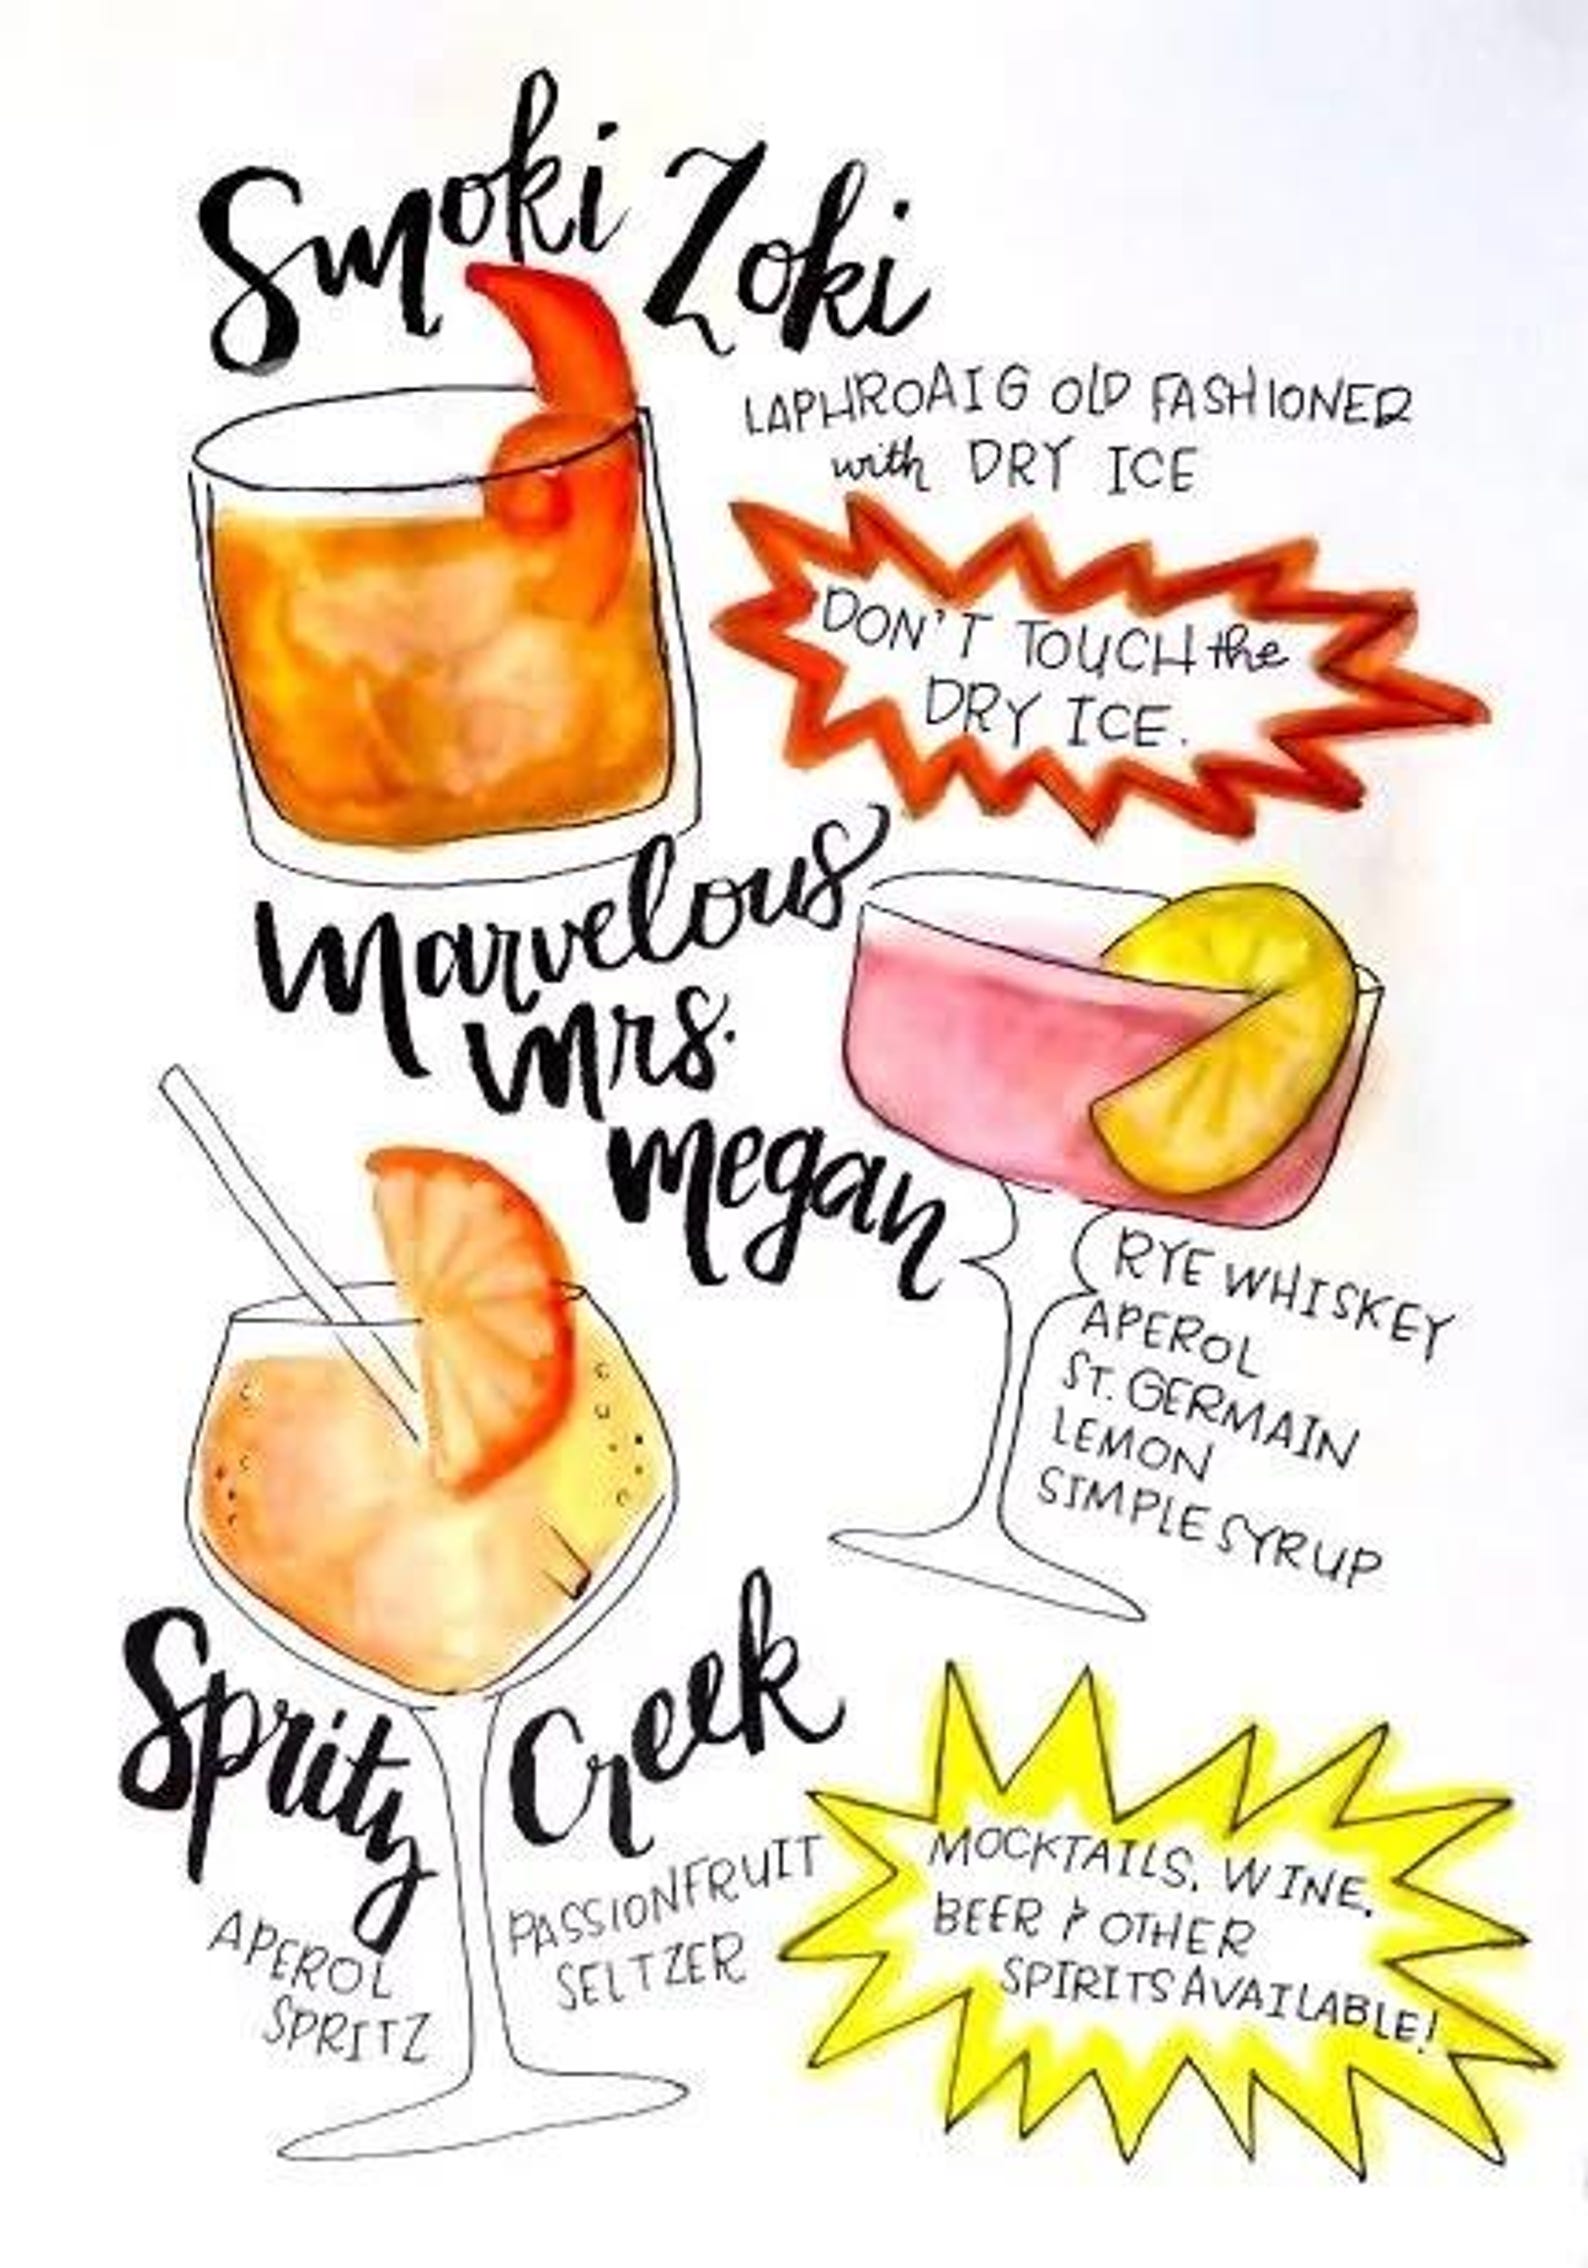 Smoki Zoki
LAPHROAIG OLD FASHIONED
with DRY ICE
DON'T TOUCH the
DRY ICE.
Marvelous
Mrs.
Megan
RYE WHISKEY
APEROL
ST. GERMAIN
LEMON
SIMPLE SYRUP
Spritz Creek
APEROL
SPRITZ
PASSIONFRUIT
SELTZER
MOCKTAILS, WINE,
BEER & OTHER
SPIRITS AVAILABLE!